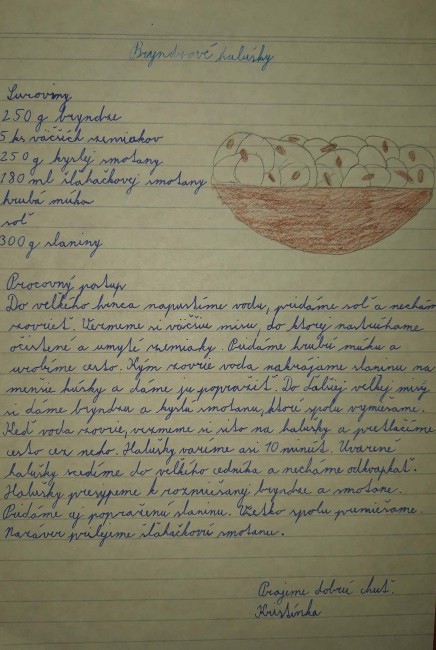 Bryndzové halušky
Suroviny
250 g bryndze
5 ks väčších zemiakov
250 g kyslej smotany
180 ml šľahačkovej smotany
hrubá múka
soľ
300 g slaniny
Procovný postup
Do veľkého hrnca napustíme vodu, pridáme soľ a necháme
zovrieť. Vezmeme si väčšiu misu, do ktorej nastrúhame
očistené a umyté zemiaky. Pridáme hrubú múku a
urobíme cesto. Kým zovrie voda nakrájame slaninu na
menšie kúsky a dáme ju popražiť. Do ďalšej veľkej misy
si dáme bryndzu a kyslú smotanu, ktoré spolu vymiešame.
Keď voda zovrie, vezmeme si sito na halušky a pretlačíme
cesto cez neho. Halušky varíme asi 10 minút. Uvarené
halušky scedíme do veľkého cedníka a necháme odkvapkať.
Halušky presypeme k rozmiešanej bryndze a smotane.
Pridáme aj popraženú slaninu. Všetko spolu premiešame.
Nazaver prilejeme šľahačkovú smotanu.
Prajeme dobrú chuť.
Kristínka